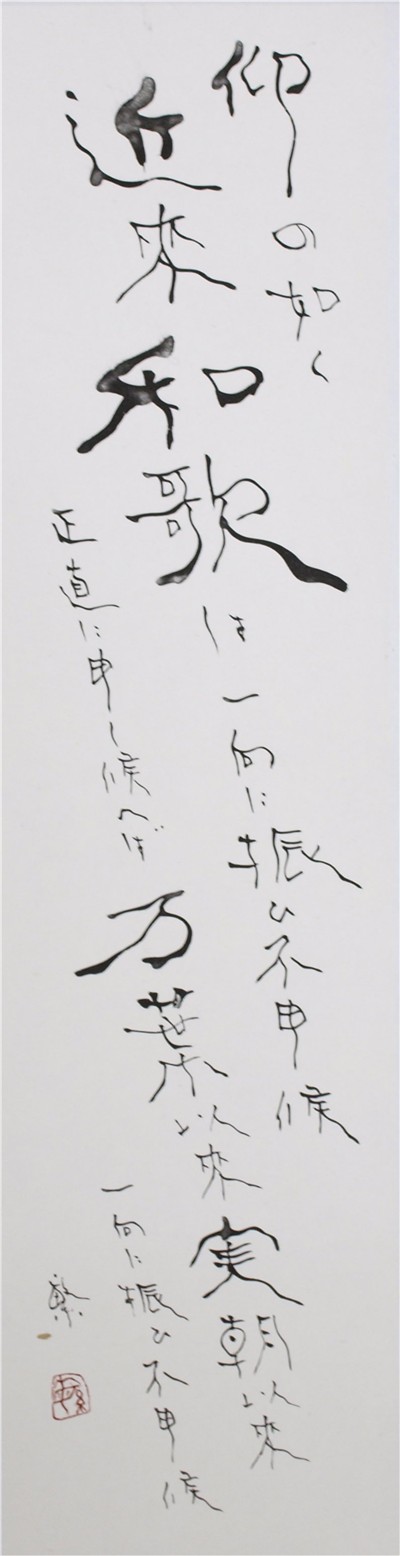 仰の如く
近來和歌は一向に振ひ不申候
正直に申し候へば万葉以來実朝以來
一向に振ひ不申候